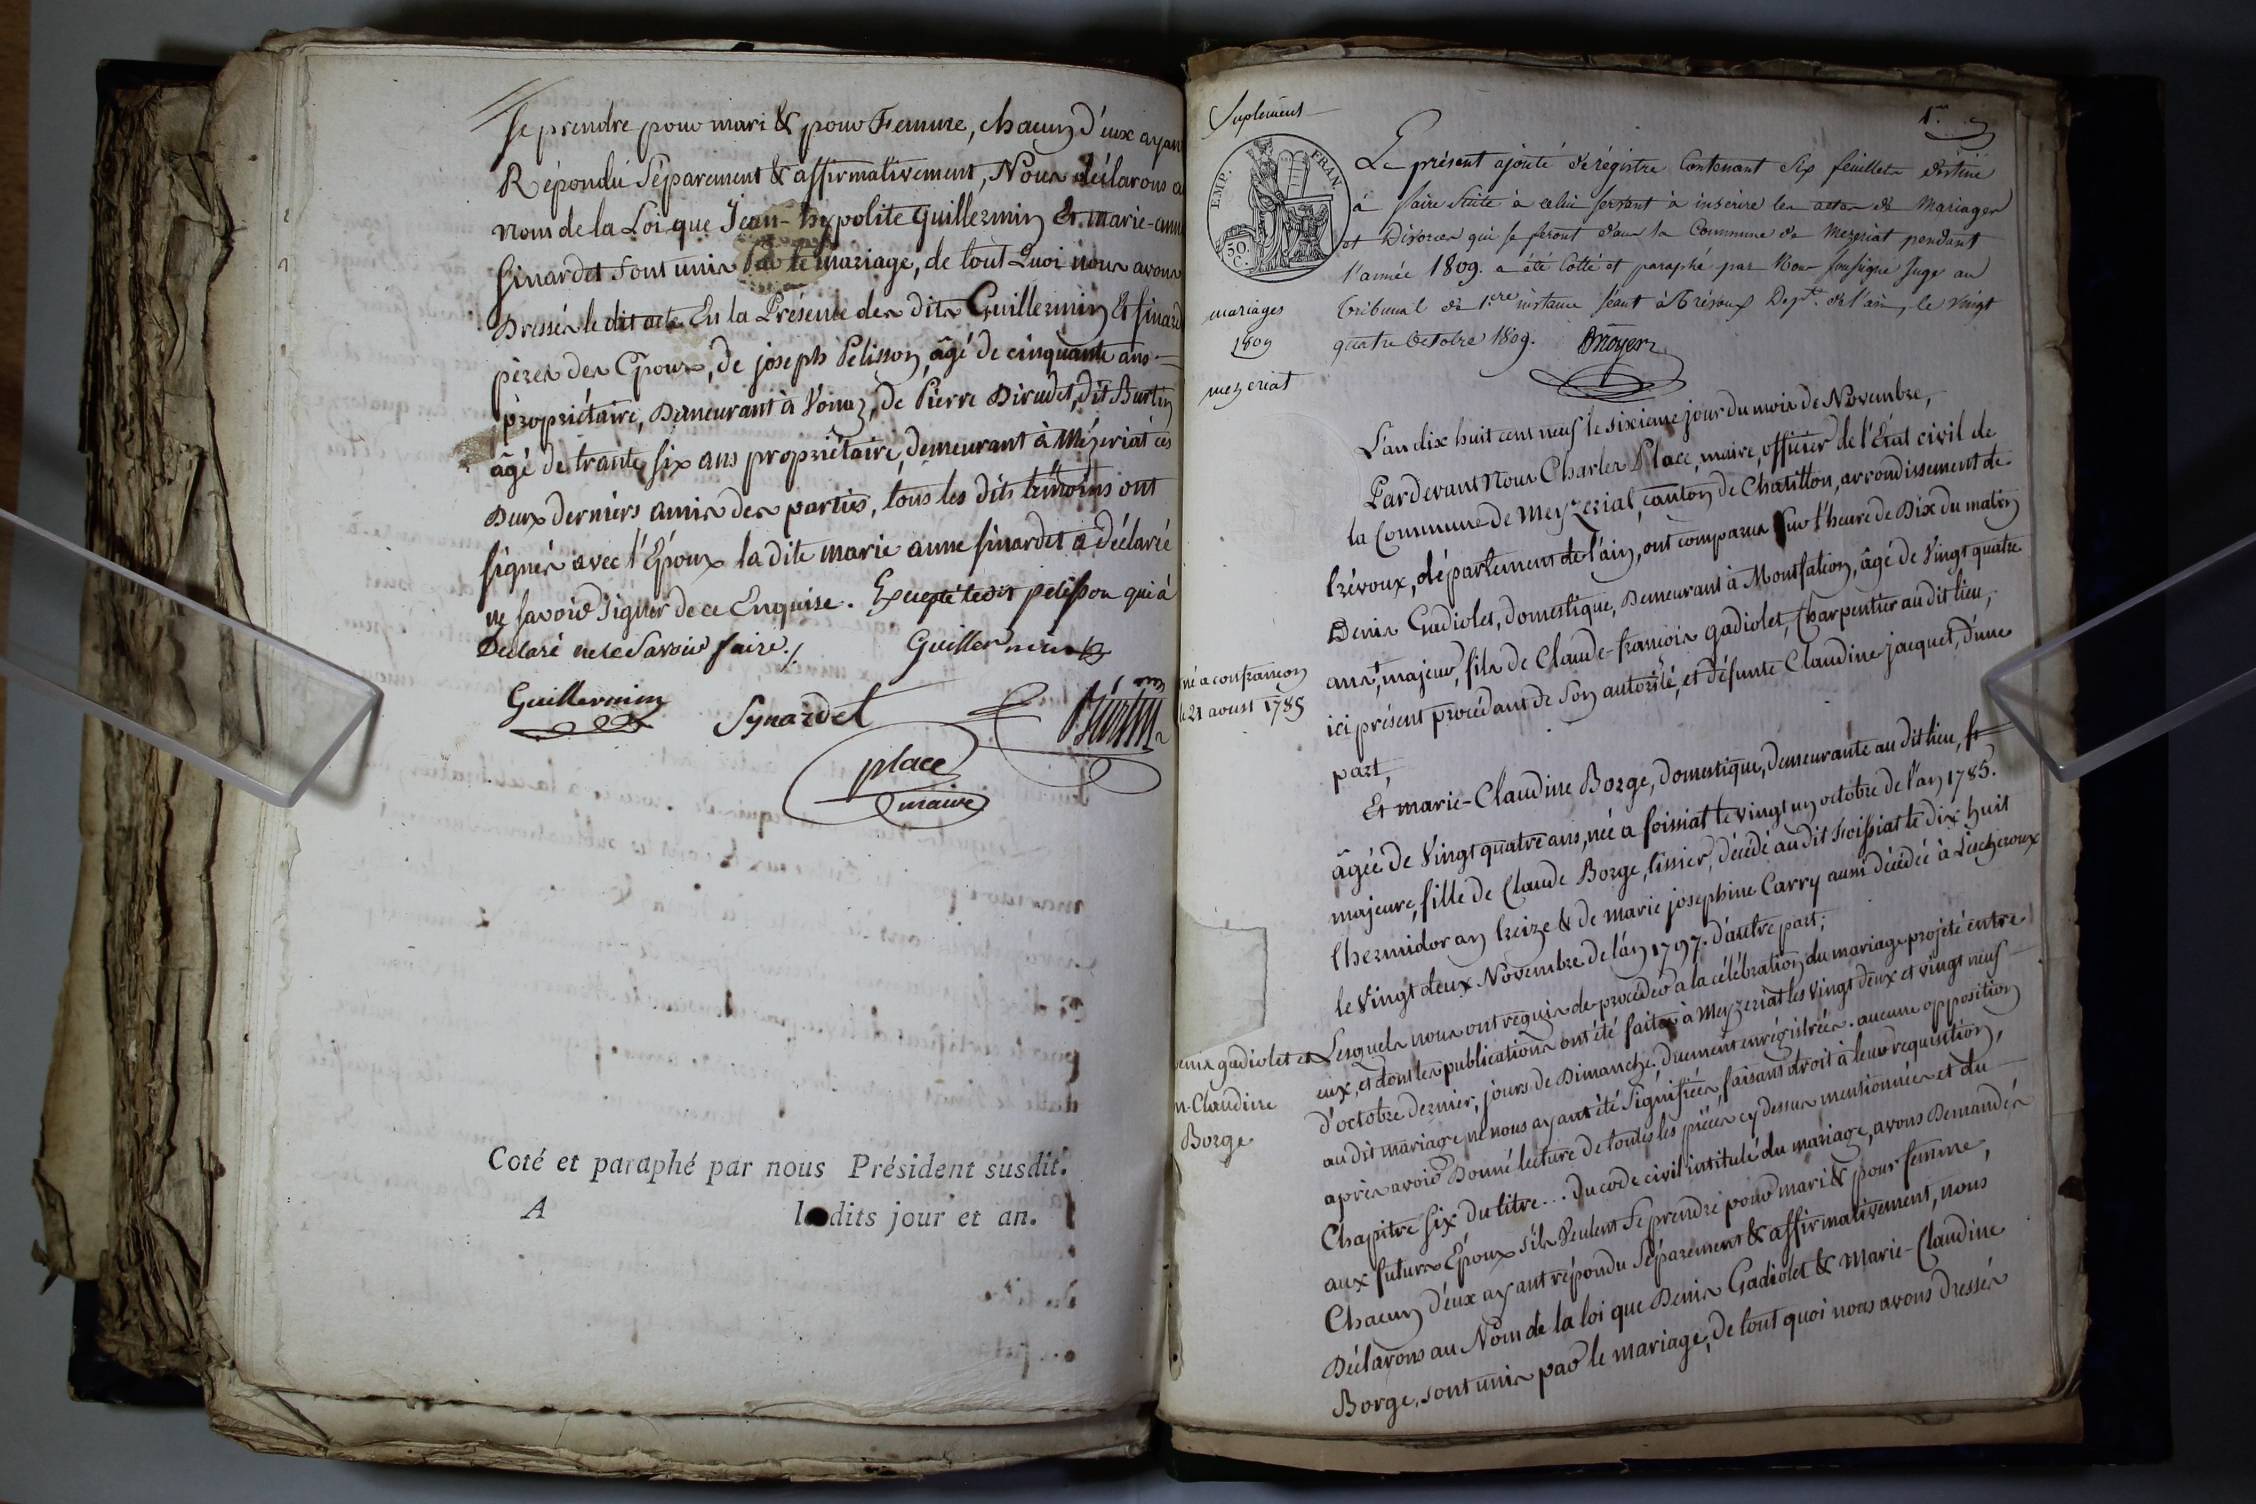 se prendre pour mari & pour Femme, chacun d'eux ayan
Répondu séparement & affirmativement, Nous déclarons a
nom de la Loi que Jean-hypolite Guillermin Et marie-anne
sinardet sont unis par le mariage, de tout Quoi nous avons
Dressés le dit acte En la Présence des dits Guillermin Et sinard
pères des Epoux, de joseph Pelisson, âgé de cinquante ans
propriétaire, Demeurant à Vonnaz, de Pierre Dirudet, dit Burtin
âgé de trante six ans propriétaire, demeurant à Mézeriat ces
Deux derniers amis des parties, tous les dits témoins ont
signés avec l'Epoux la dite marie anne sinardet a déclaré
ne savoir signer de ce Enquise. Excepté ledit pelisson qui à
Declaré ne le savoir faire ./.
Guillermin
Guillermin
Synardet
Burtin
place
maire
Coté et paraphé par nous Président susdit.
A lesdits jour et an.
Suplement
1er
EMP. FRAN.
50.
C.
Le présent ajouté de régistre Contenant six feuillets destiné
à faire suite à celui servant à insérire les actes de Mariages
et Divorces qui se feront dans la Commune de Mezeriat pendant
l'année 1809. a été Cotté et paraphé par Nous soussigné Juge au
tribunal de 1.ere instance séant à Trévoux Dept. de l'ain, le vingt
quatre Octobre 1809.
mariages
1809
mezeriat
L'an dix huit cent neuf le sixieme jour du mois de Novembre,
Pardevant Nous Charles Place, maire, officier de l'Etat civil de
la Commune de Meyzeriat, canton de Chatillon, arrondissement de
trévoux, département de l'ain, ont comparus sur l'heure de Dix du matin
Denis Gadiolet, domestique, Demeurant à Montfalcon, âgé de Vingt quatre
ans, majeur, fils de Claude-francois gadiolet, Charpentier au dit lieu,
ici présent procédant de son autorité, et défunte Claudine jacquet, d'une
part,
né a confrançon
le 21 aoust 1785
Et marie-Claudine Borge, domestique, demeurante au dit lieu,
âgée de Vingt quatre ans, née a foissiat le vingt un octobre de l'an 1785.
majeure, fille de Claude Borge, tissier, décédé au dit foissiat le dix huit
thermidor an treize & de marie josephine Carry aussi décédée à Lescheroux
le Vingt deux Novembre de l'an 1797. d'autre part;
Lesquels nous ont requis de procéder a la célébration du mariage projeté entre
eux, et dont les publications ont été faites à Meyzeriat les vingt deux et vingt neuf
d'octobre dernier, jours de Dimanche. duement enrégistrées. aucune opposition
au dit mariage ne nous ayant été signifiée, faisant droit à leur requisition,
après avoir Donné lecture de toutes les pièces cy dessus mentionnées et du
Chapitre six du titre ... du code civil intitulé du mariage, avons Demandés
aux futurs Epoux s'ils Veulent se prendre pour mari & pour femme,
Chacun d'eux ayant répondu séparement & affirmativement, nous
Déclarons au Nom de la loi que Denis Gadiolet & Marie-Claudine
Borge, sont unis par le mariage, de tout quoi nous avons dressés
enis gadiolet et
m-Claudine
Borge